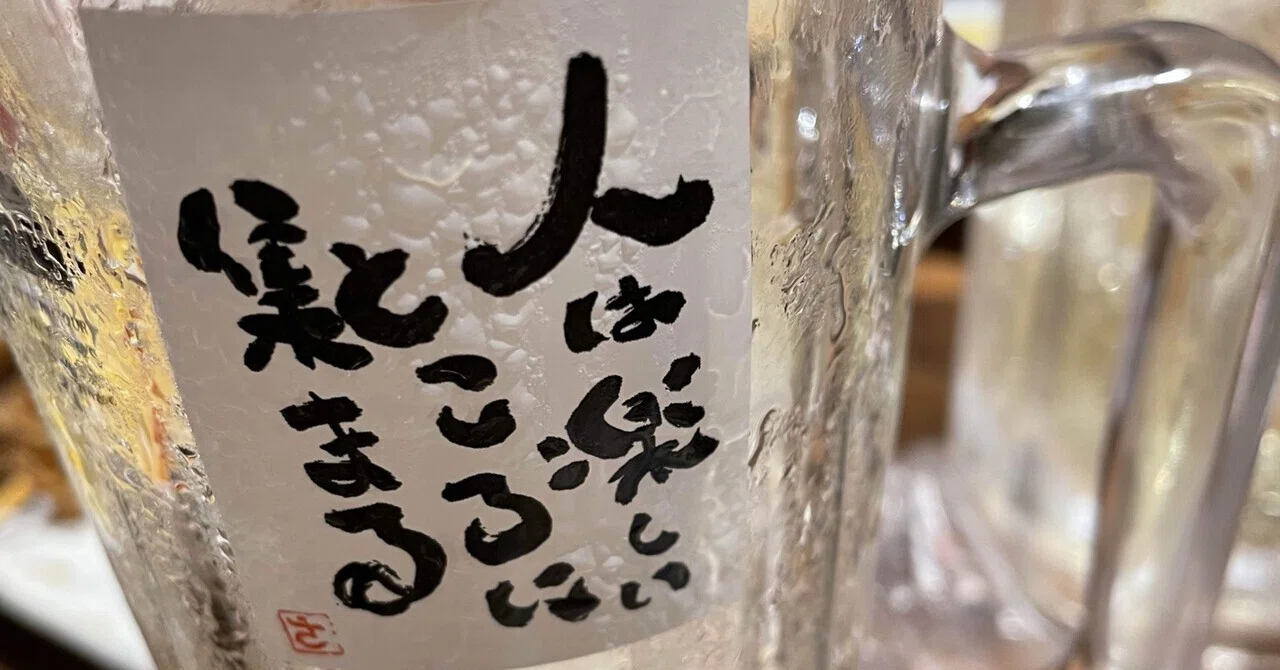 人は楽しい
ところに
集まる